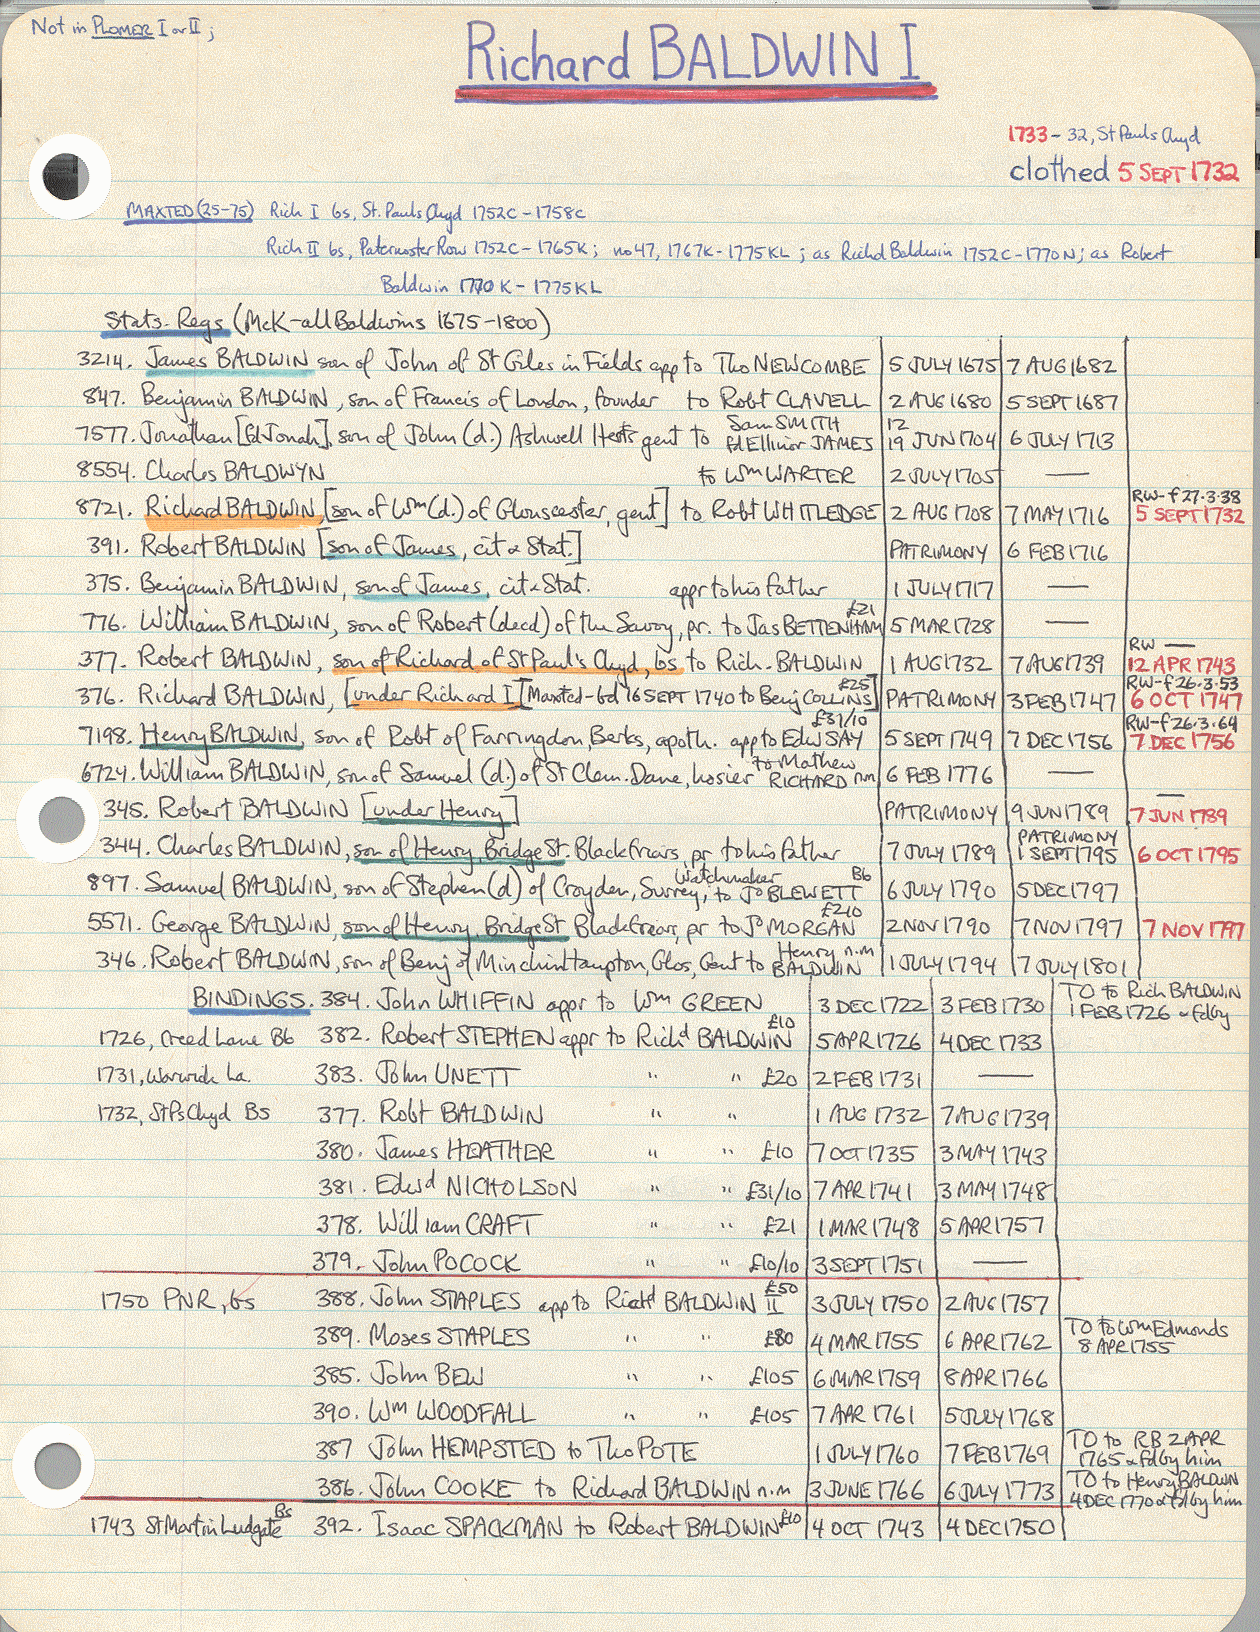 Not in PLOMER I or II;
Richard BALDWIN I
1733 - 32, St Pauls Chyd
clothed 5 SEPT 1732
MAXTED (25-75) Rich I bs, St. Pauls Chyd 1752C - 1758C
Rich II bs, Paternoster Row 1752C - 1765K; no 47, 1767K - 1775KL; as Richd Baldwin 1752C - 1770N; as Robert
Baldwin 1770K - 1775KL
Stats. Regs (McK - all Baldwins 1675-1800)
3214. James BALDWIN son of John of St Giles in Fields app to Tho NEWCOMBE 5 JULY 1675 7 AUG 1682
847. Benjamin BALDWIN, son of Francis of London, founder to Robt CLAVELL 2 AUG 1680 5 SEPT 1687
Sam SMITH 12
7577. Jonathan [fd Jonah], son of John (d.) Ashwell Herts gent to fd Ellinor JAMES 19 JUN 1704 6 JULY 1713
8554. Charles BALDWYN to Wm WARTER 2 JULY 1705 —
RW - f 27.3.38
8721. Richard BALDWIN [son of Wm (d.) of Gloucester, gent] to Robt WHITLEDGE 2 AUG 1708 7 MAY 1716 5 SEPT 1732
391. Robert BALDWIN [son of James, cit & Stat.] PATRIMONY 6 FEB 1716
375. Benjamin BALDWIN, son of James, cit & Stat. appr to his father 1 JULY 1717 —
£21
776. William BALDWIN, son of Robert (decd) of the Savoy, pr. to Jas BETTENHAM 5 MAR 1728 —
RW —
377. Robert BALDWIN, son of Richard of St Paul's Chyd, bs to Rich. BALDWIN 1 AUG 1732 7 AUG 1739 12 APR 1743
£25 RW - f 26.3.53
376. Richard BALDWIN, [under Richard I] [Maxted - bd 16 SEPT 1740 to Benj COLLINS] PATRIMONY 3 FEB 1747 6 OCT 1747
£31/10 RW - f 26.3.64
7198. Henry BALDWIN, son of Robt of Farringdon, Berks, apoth. app to Edw SAY 5 SEPT 1749 7 DEC 1756 7 DEC 1756
to Mathew
6724. William BALDWIN, son of Samuel (d.) of St Clem. Dane, hosier RICHARD n.m 6 FEB 1776 —
—
345. Robert BALDWIN [under Henry] PATRIMONY 9 JUN 1789 7 JUN 1789
PATRIMONY
344. Charles BALDWIN, son of Henry, Bridge St. Blackfriars, pr to his father 7 JULY 1789 1 SEPT 1795 6 OCT 1795
Watchmaker B6
897. Samuel BALDWIN, son of Stephen (d) of Croydon, Surrey, to Jo BLEWETT 6 JULY 1790 5 DEC 1797
£210
5571. George BALDWIN, son of Henry, Bridge St Blackfriars, pr to Jo MORGAN 2 NOV 1790 7 NOV 1797 7 NOV 1797
Henry n.m
346. Robert BALDWIN, son of Benj of Minchinhampton, Glos, Gent to BALDWIN 1 JULY 1794 7 JULY 1801
BINDINGS. 384. John WHIFFIN appr to Wm GREEN 3 DEC 1722 3 FEB 1730 TO to Rich BALDWIN
1 FEB 1726 & fd by
£10
1726, Creed Lane Bb 382. Robert STEPHEN appr to Richd BALDWIN 5 APR 1726 4 DEC 1733
1731, Warwick La. 383. John UNETT " " £20 2 FEB 1731 —
1732, St Ps Chyd Bs 377. Robt BALDWIN " " 1 AUG 1732 7 AUG 1739
380. James HEATHER " " £10 7 OCT 1735 3 MAY 1743
381. Edwd NICHOLSON " " £31/10 7 APR 1741 3 MAY 1748
378. William CRAFT " " £21 1 MAR 1748 5 APR 1757
379. John POCOCK " " £10/10 3 SEPT 1751 —
£50
1750 PNR, bs 388. John STAPLES app to Richd BALDWIN II 3 JULY 1750 2 AUG 1757
TO to Wm Edmonds
389. Moses STAPLES " " £80 4 MAR 1755 6 APR 1762 8 APR 1755
385. John BEW " " £105 6 MAR 1759 8 APR 1766
390. Wm WOODFALL " " £105 7 APR 1761 5 JULY 1768
TO to RB 2 APR
387 John HEMPSTED to Tho POTE 1 JULY 1760 7 FEB 1769 1765 & fd by him
TO to Henry BALDWIN
386. John COOKE to Richard BALDWIN n.m 3 JUNE 1766 6 JULY 1773 4 DEC 1770 & fd by him
Bs
1743 St Martin Ludgate 392. Isaac SPACKMAN to Robert BALDWIN £10 4 OCT 1743 4 DEC 1750